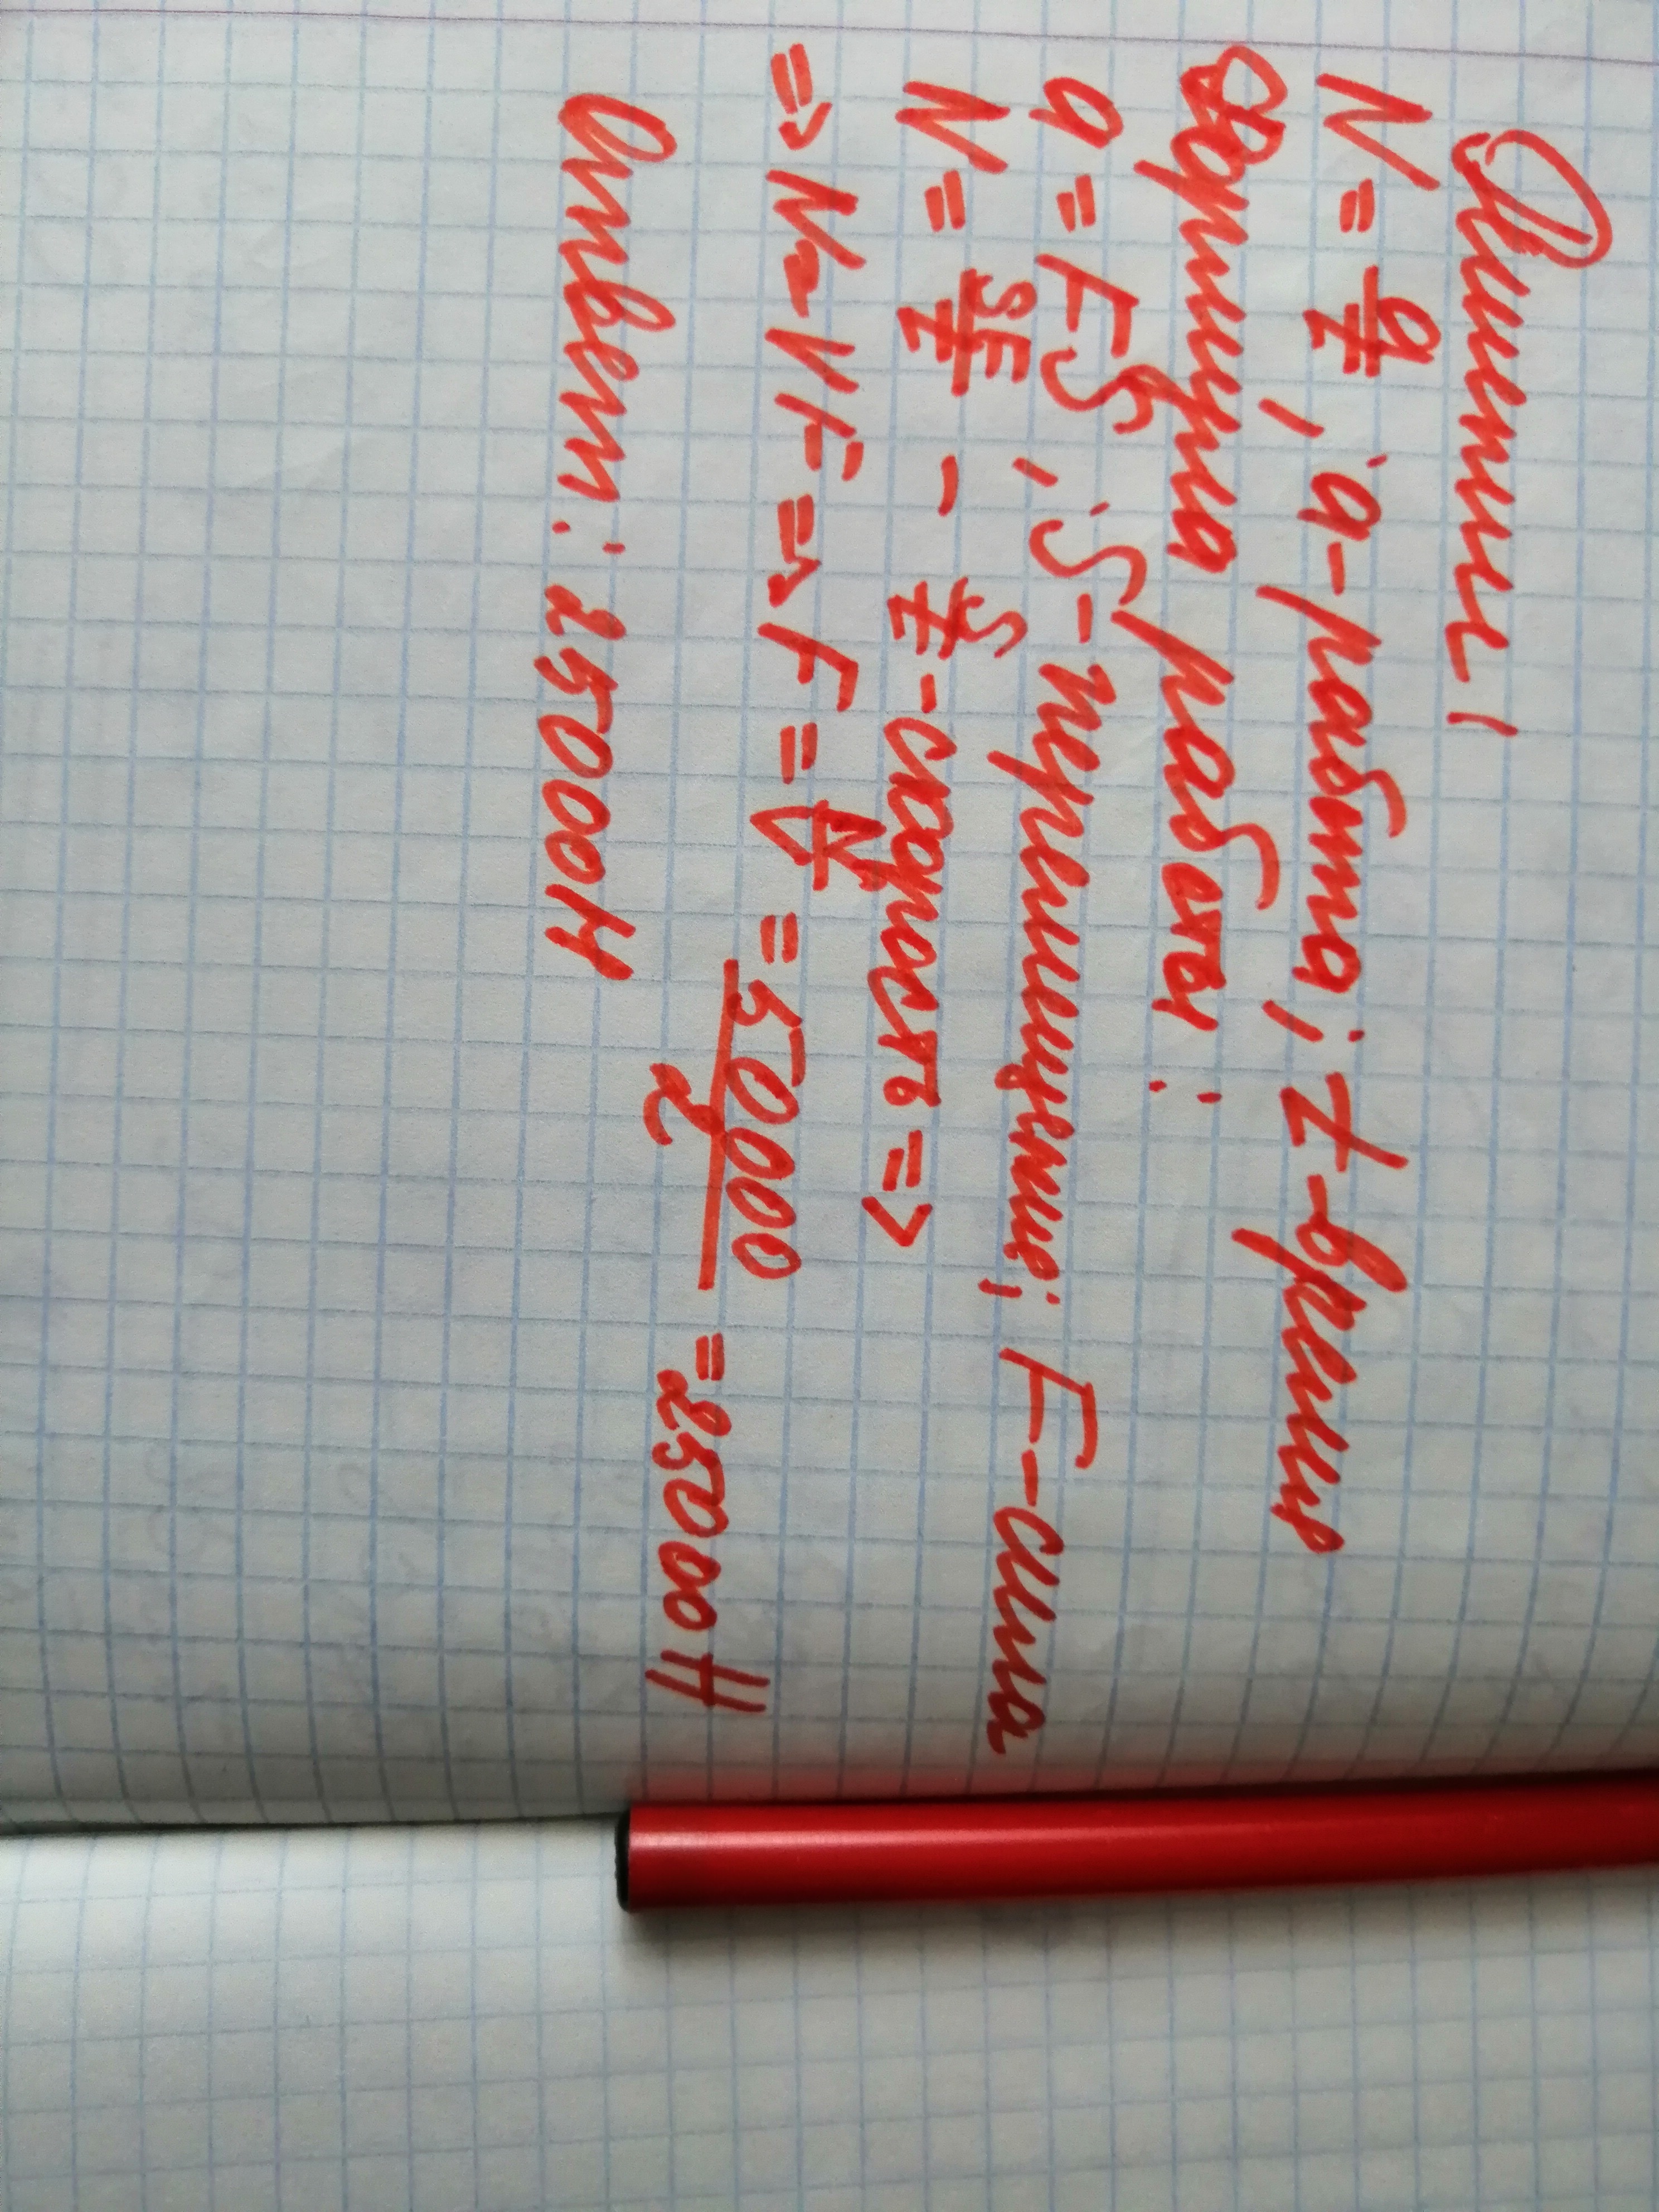 Решение 1
N = a/t, a - работа; t - время
Формула работы:
a = FS, S - перемещение; F - сила
N = SF/t - S/t - скорость =>
=> N = VF => F = N/V = 50000/2 = 25000 Н
Ответ: 25000Н